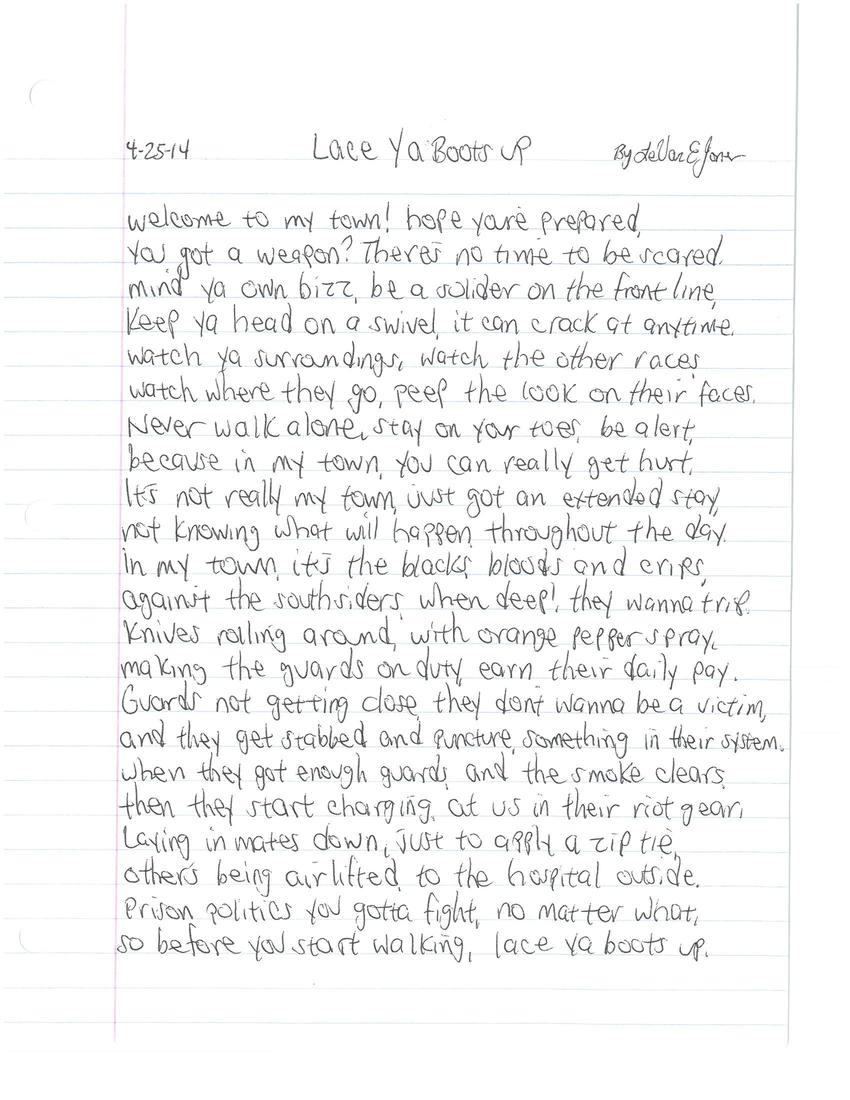 4-25-14 Lace Ya Boots up By DeVon E. Jones
welcome to my town! hope you're prepared,
you got a weapon? There's no time to be scared.
mind ya own bizz, be a solider on the front line,
Keep ya head on a swivel, it can crack at anytime.
watch ya surrondings, watch the other races
watch where they go, peep the look on their faces.
Never walk alone, stay on your toes, be alert,
because in my town, you can really get hurt.
It's not really my town, just got an extended stay,
not knowing what will happen, throughout the day.
In my town, it's the blacks, bloods and crips,
against the southsiders, when deep!, they wanna trip.
Knives rolling around, with orange pepper spray,
making the guards on duty, earn their daily pay.
Guards not getting close, they don't wanna be a victim,
and they get stabbed and puncture, something in their system.
when they got enough guards, and the smoke clears,
then they start charging, at us in their riot gear,
Laying in mates down, just to apply a zip tie,
other's being airlifted, to the hospital outside.
Prison politics you gotta fight, no matter what,
so before you start walking, lace ya boots up.